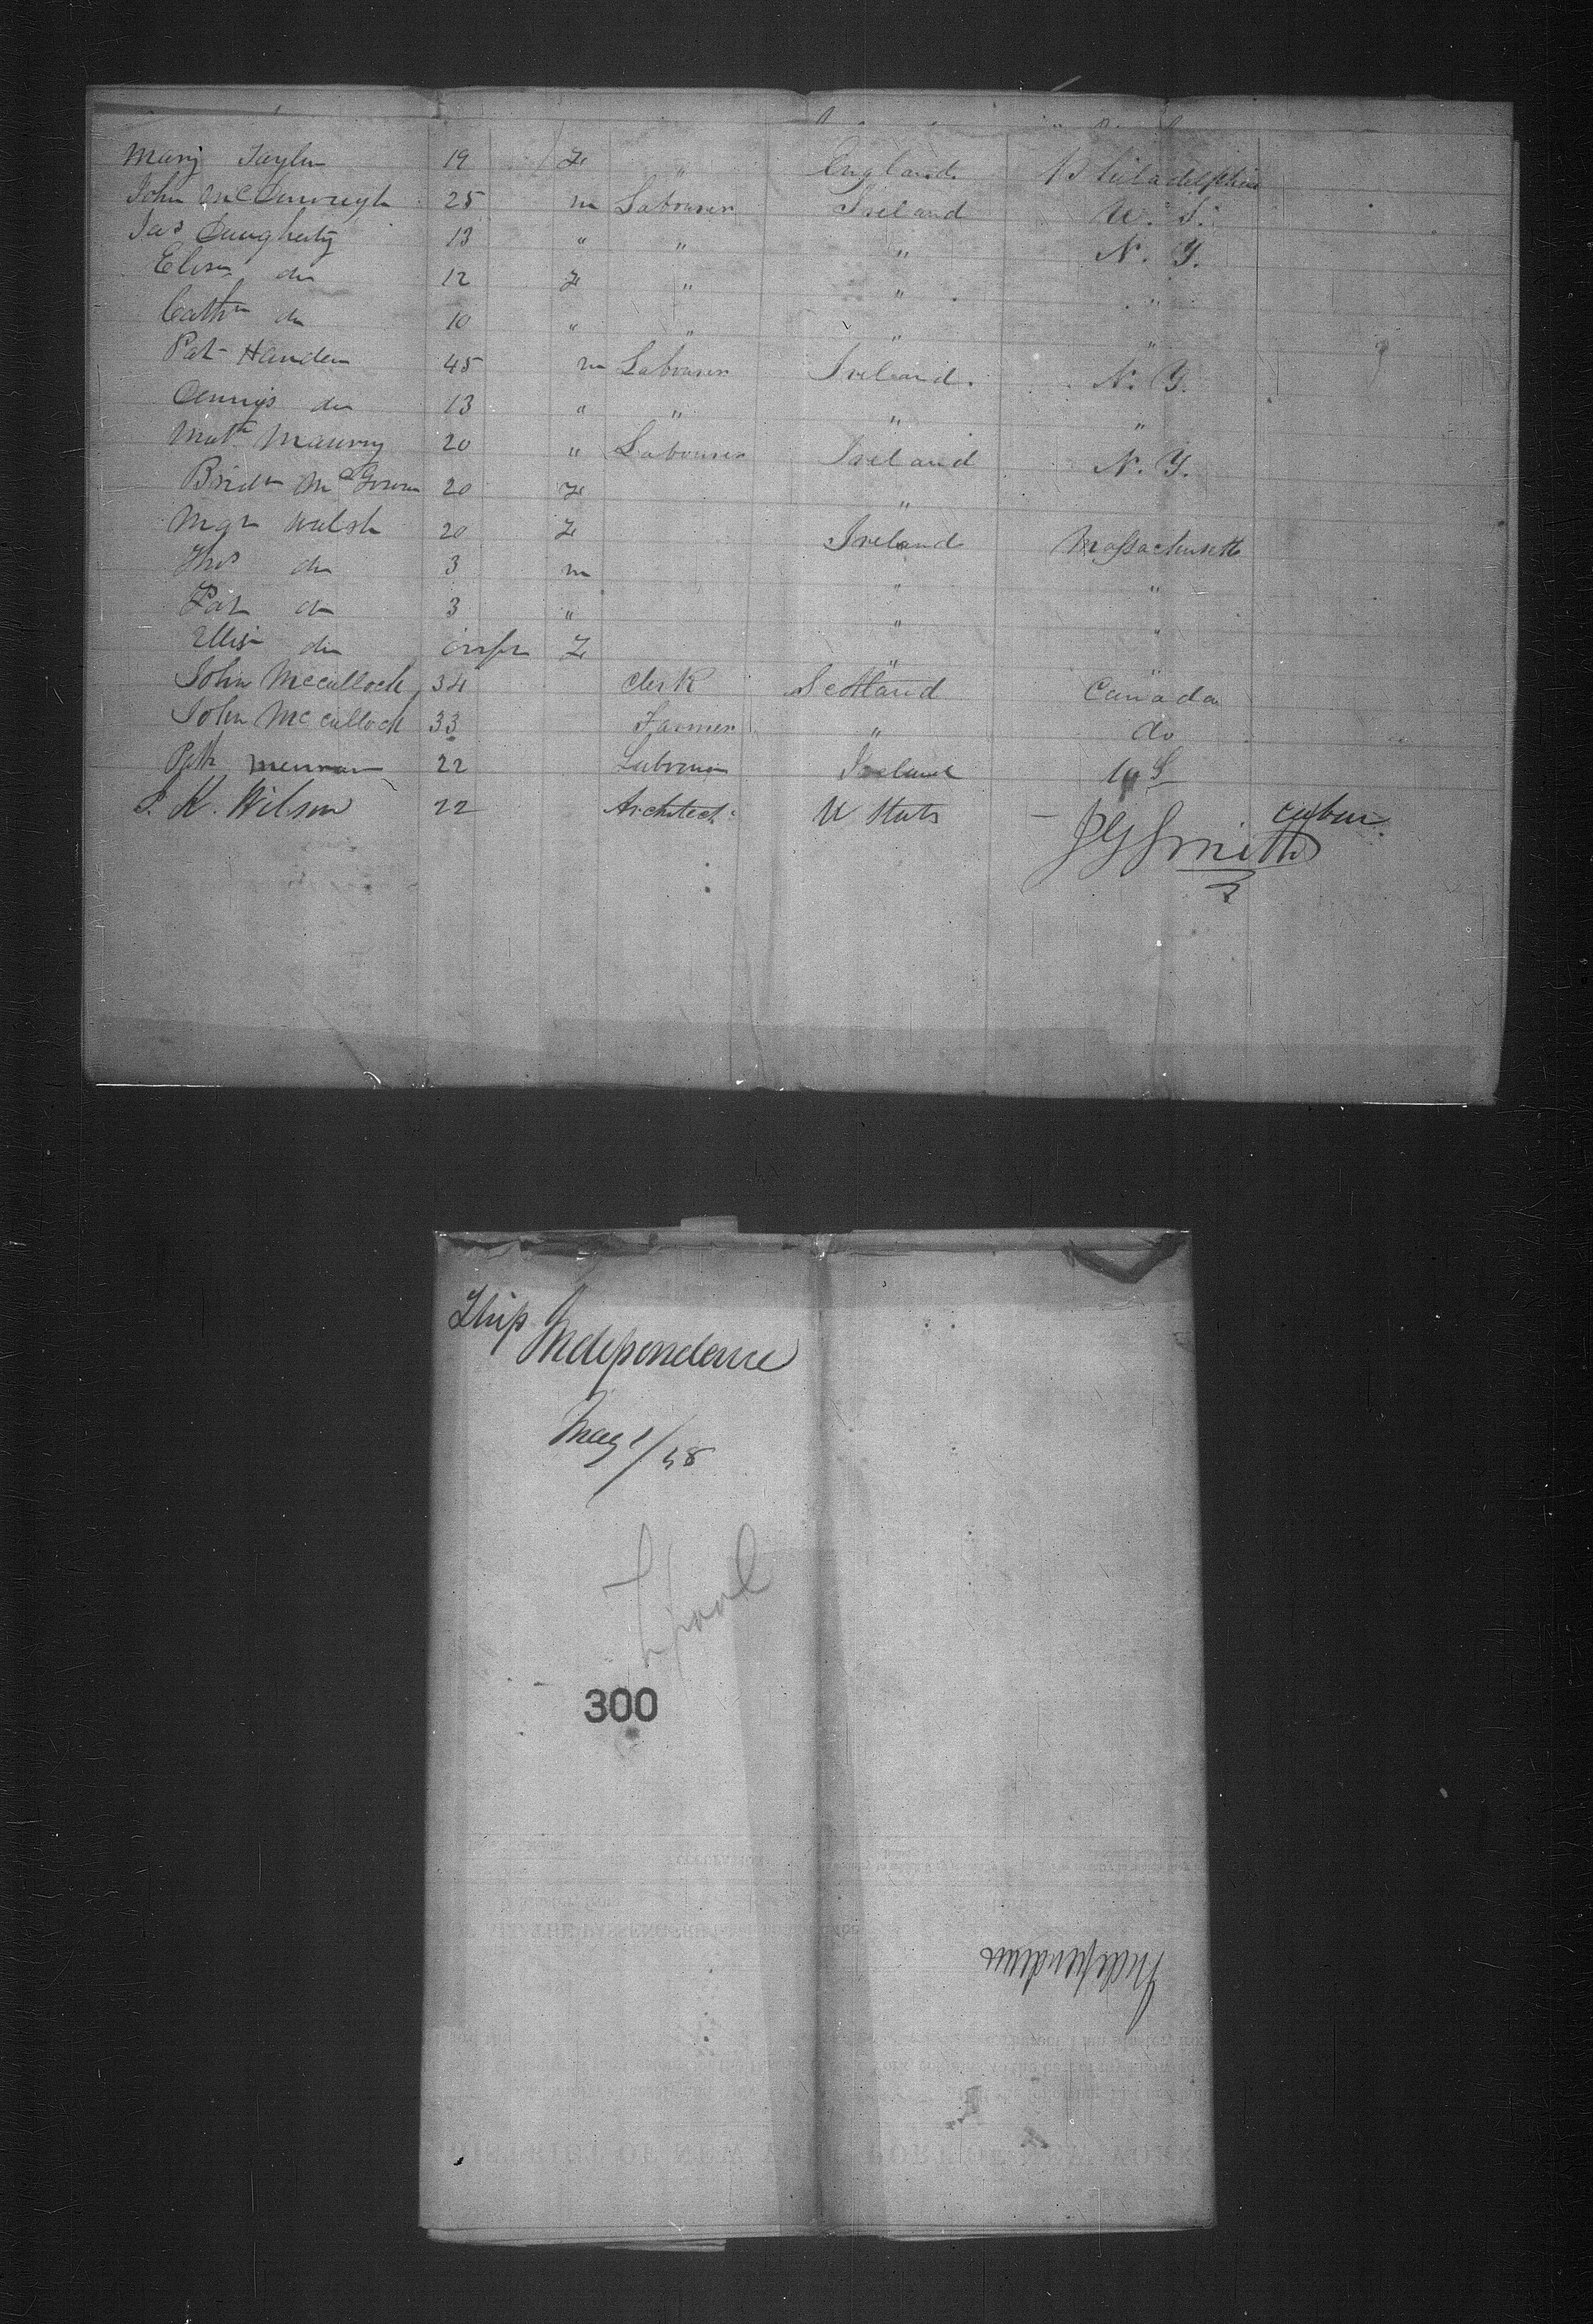 Mary Taylor 19 F " England Philadelphia
John 25 m Labourer Ireland U. S.
Jas Daugherty 13 " " " N. Y.
Eliza do 12 F " " "
Cathn do 10 " " " "
Pat Handen 45 m Labourer Ireland. N. Y.
Dennis do 13 " " " "
20 " Labourer Ireland N. Y.
McGowan 20 F "
Mar Walsh 20 F Ireland Massachusetts
Thos do 3 m " "
Pat do 3 " " "
do F " "
John McCulloch 34 Clerk Scotland Canada
John McCulloch 33 Farmer " do
22 Labourer Ireland U S
S. K. Wilson 22 Architect U States — cabin
J G Smith
Ship Independence
May 1/48
Lpool
300
Independence
DISTRICT OF NEW YORK PORT OF NEW YORK